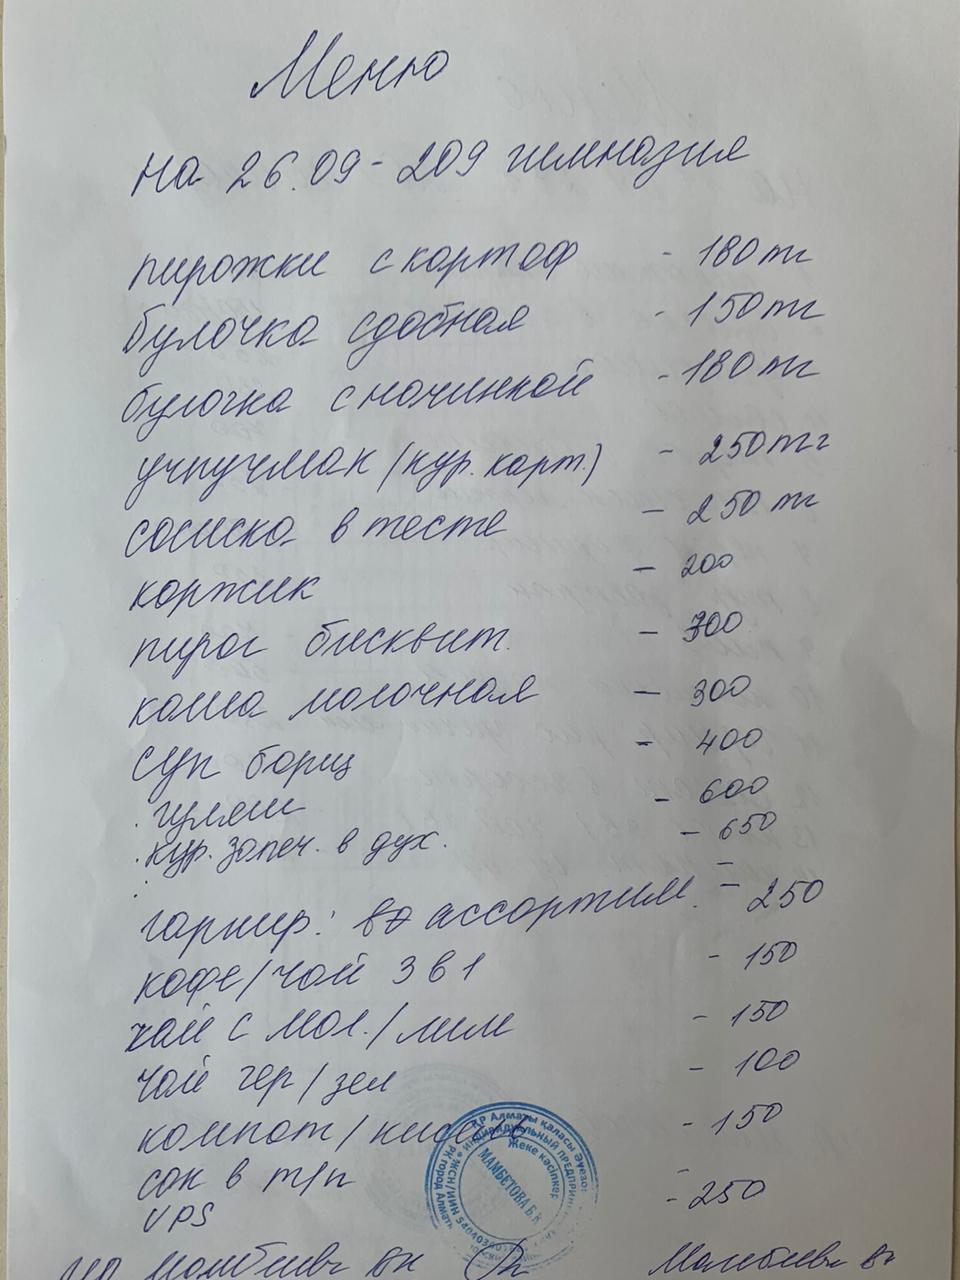 Меню
на 26.09 - 209 гимназия
пирожки с картоф - 180 тг
булочка сдобная - 150 тг
булочка с начинкой - 180 тг
учпучмак (кур. карт.) - 250 тг
сосиска в тесте - 250 тг
коржик - 200
пирог бисквит. - 300
каша молочная - 300
суп борщ - 400
гуляш - 600
кур. запеч. в дух. - 650
гарнир: в ассортим. - 250
кофе/чай 3 в 1 - 150
чай с мол./лим - 150
чай чер/зел - 100
компот/кисель - 150
сок в т/п -
- 250
ҚР Алматы қаласы Әуезов
РК город Алматы
индивидуальный предприн
ЖСН/ИИН
Жеке кәсіпкер
МАМБЕТОВА Б.К
ИП